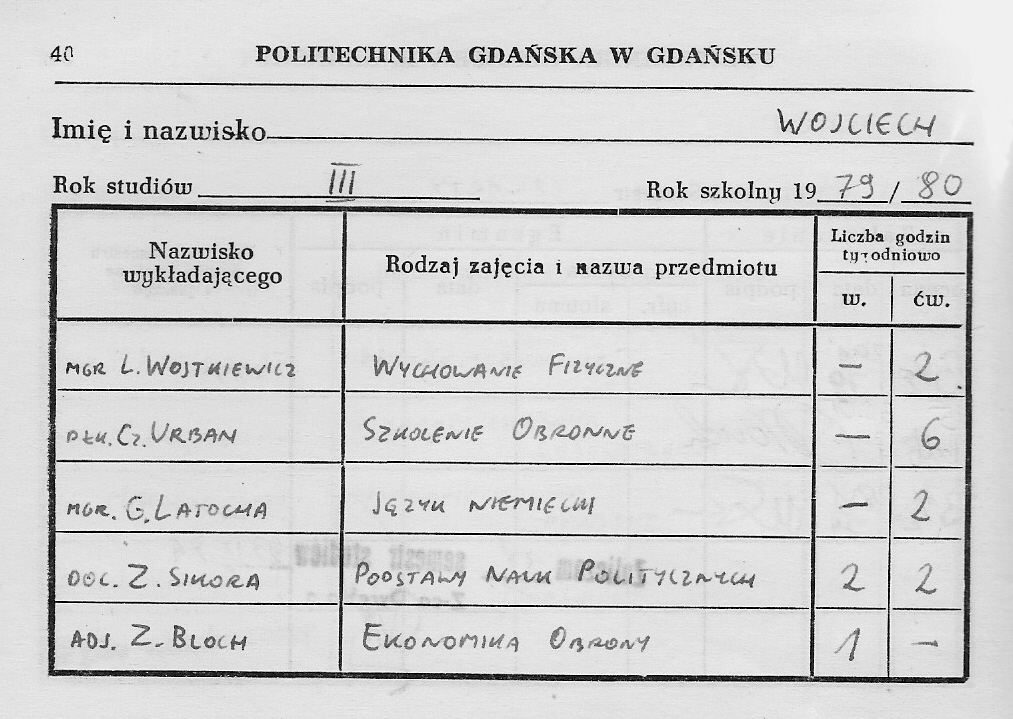 40 POLITECHNIKA GDAŃSKA W GDAŃSKU
Imię i nazwisko WOJCIECH
Rok studiów III Rok szkolny 19 79 / 80
Nazwisko wykładającego Rodzaj zajęcia i nazwa przedmiotu Liczba godzin tygodniowo
w. ćw.
MGR L. WOJTKIEWICZ WYCHOWANIE FIZYCZNE — 2
PŁK. CZ. URBAN SZKOLENIE OBRONNE — 6
MGR. G. LATOCHA JĘZYK NIEMIECKI — 2
DOC. Z. SIKORA PODSTAWY NAUK POLITYCZNYCH 2 2
ADJ. Z. BLOCH EKONOMIKA OBRONY 1 —